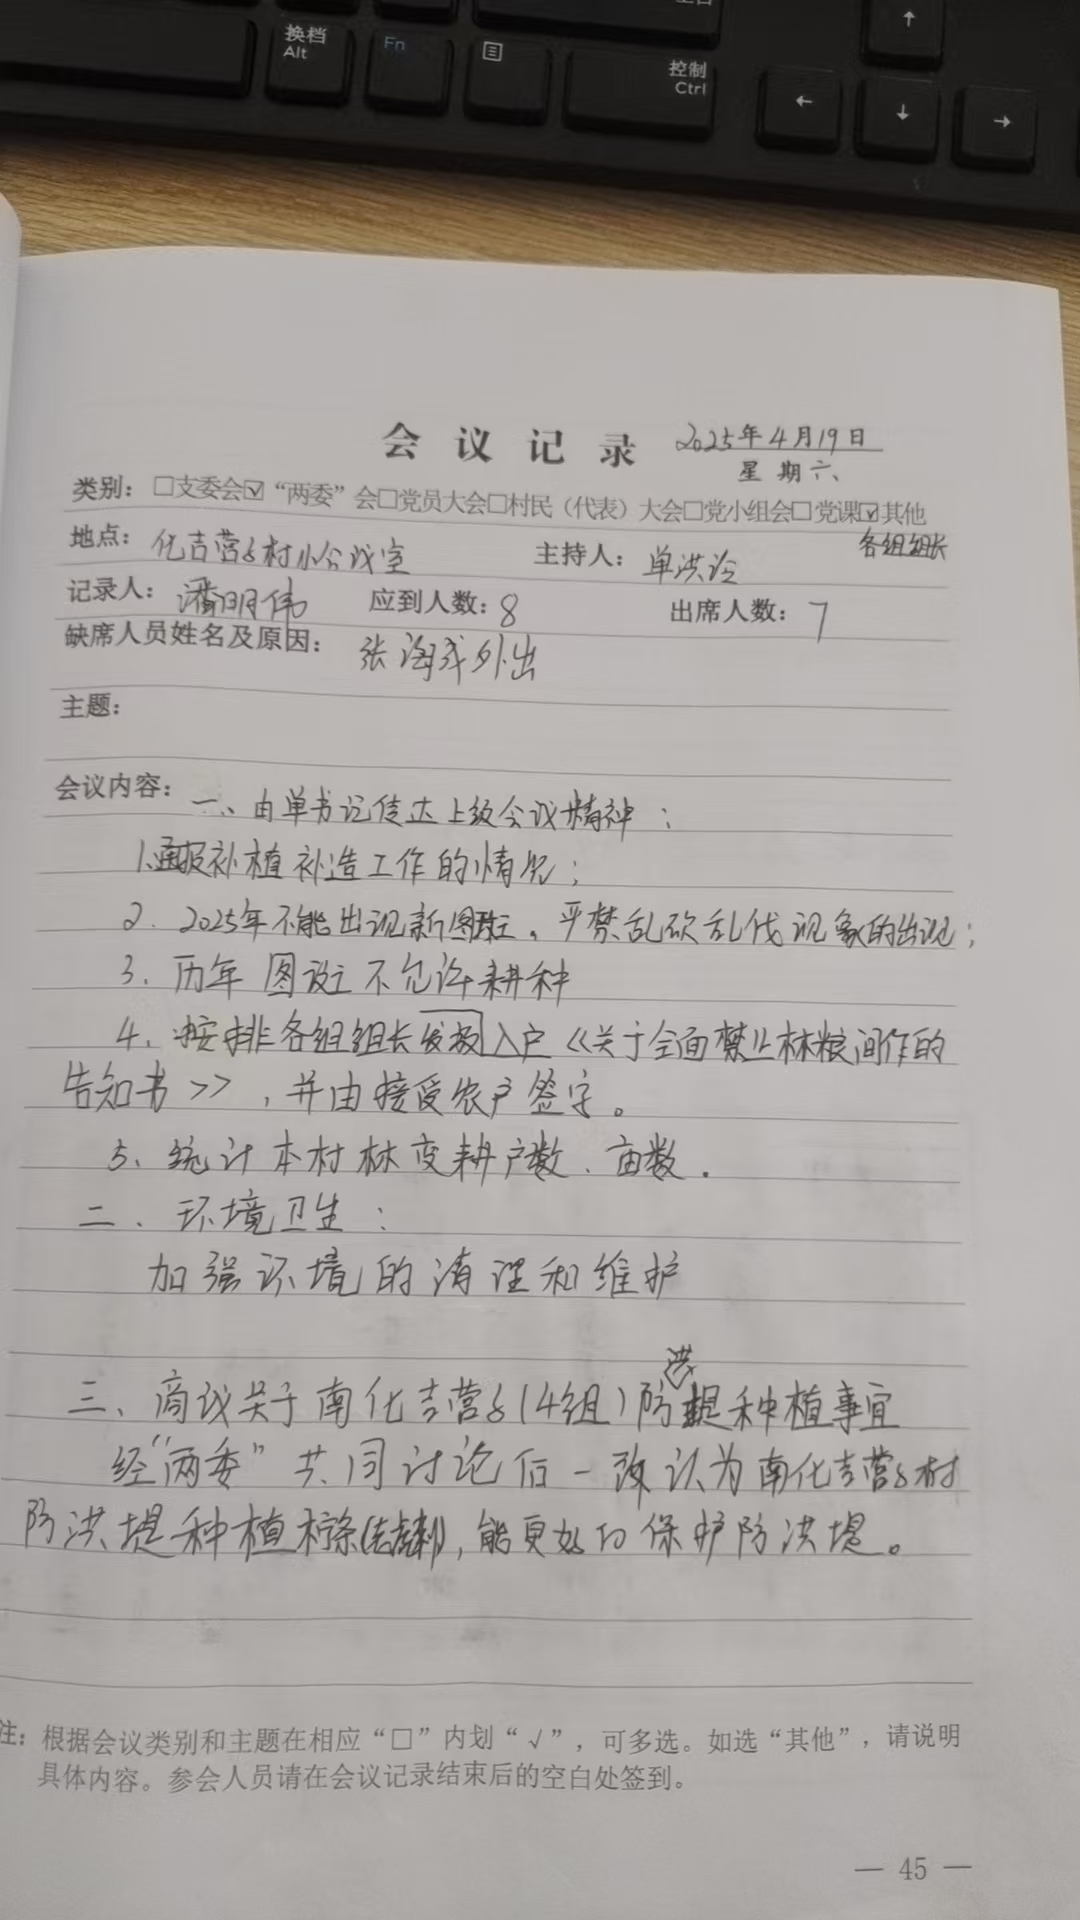 换档
Alt
Fn
控制
Ctrl
会议记录 2025年4月19日
星期六、
类别：□支委会☑“两委”会□党员大会□村民（代表）大会□党小组会□党课☑其他
各组组长
地点：化吉营子村小会议室 主持人：单洪
记录人：潘明伟 应到人数：8 出席人数：7
缺席人员姓名及原因：张海成外出
主题：
会议内容：一、由单书记传达上级会议精神：
1.通报补植补造工作的情况；
2．2025年不能出现新图斑。严禁乱砍乱伐现象的出现；
3．历年图斑不允许耕种
4、按排各组组长发放入户《关于全面禁止林粮间作的
告知书>>，并由接受农户签字。
5、统计本村林变耕户数、亩数．
二．环境卫生：
加强环境的清理和维护
三、商议关于南化吉营子(4组)防洪堤种植事宜
经“两委”共同讨论后一致认为南化吉营子村
防洪堤种植柠条，能更好的保护防洪堤。
注：根据会议类别和主题在相应“□”内划“√”，可多选。如选“其他”，请说明
具体内容。参会人员请在会议记录结束后的空白处签到。
— 45 —